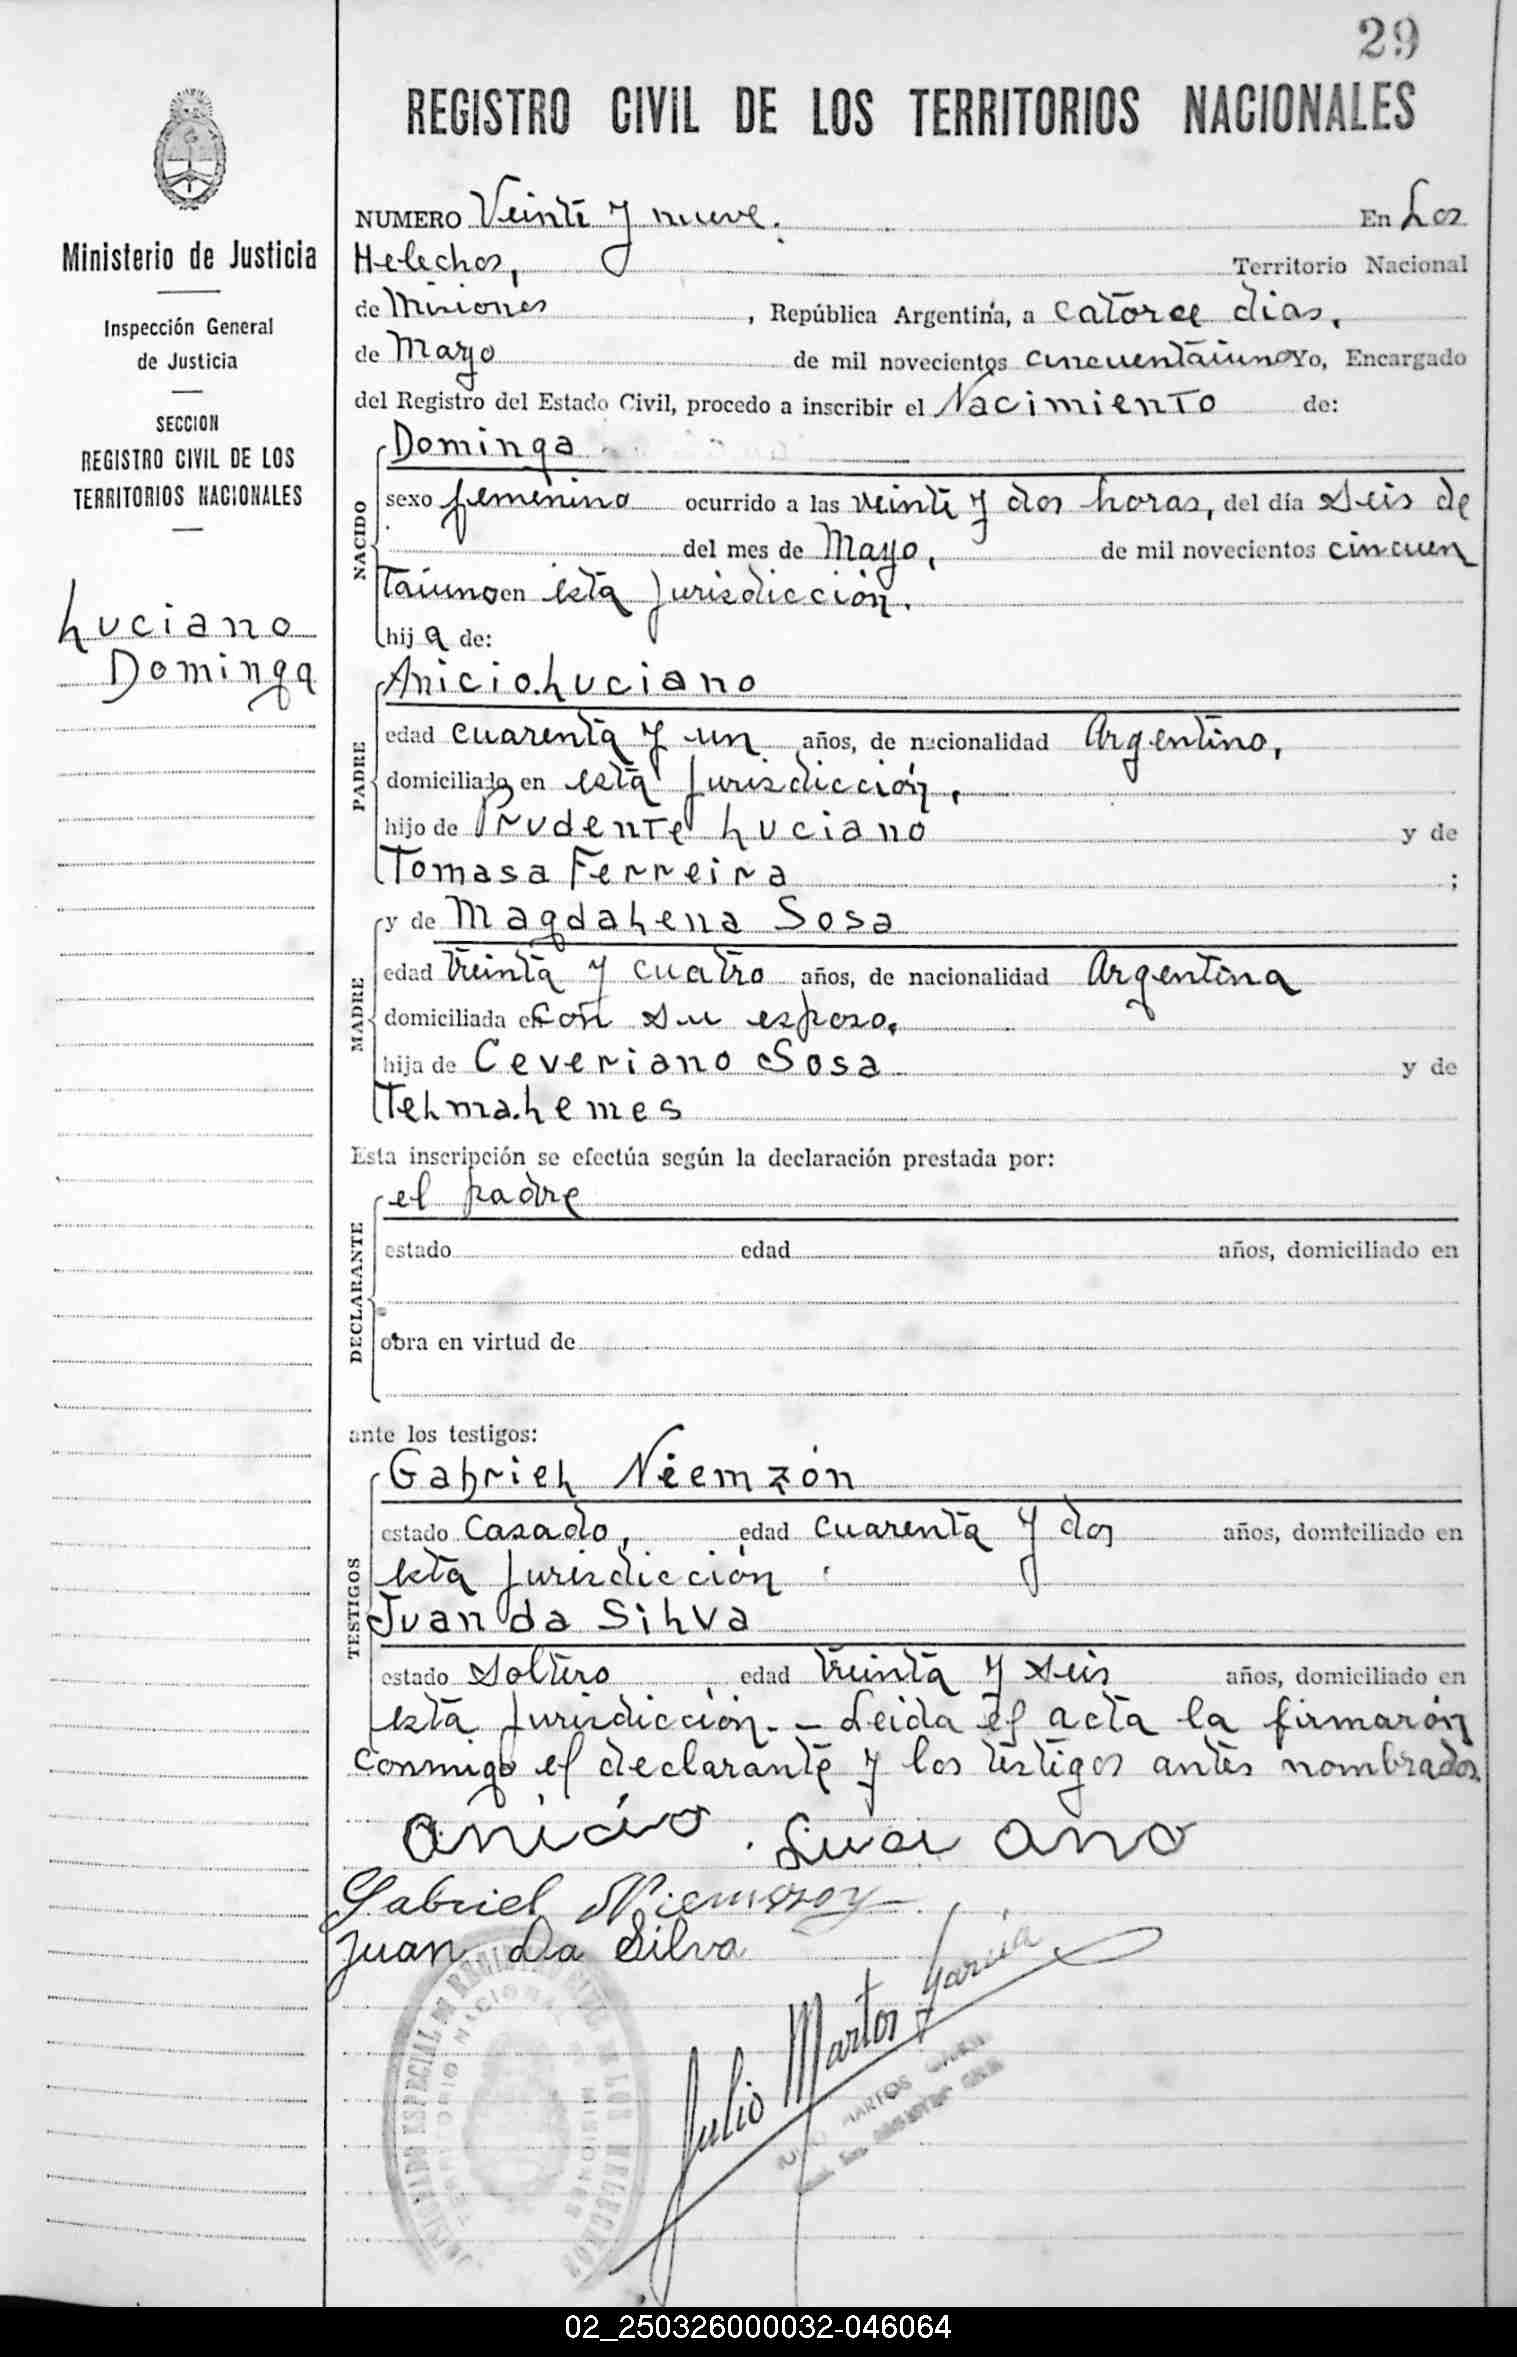 29
REGISTRO CIVIL DE LOS TERRITORIOS NACIONALES
Ministerio de Justicia
Inspección General
de Justicia
SECCION
REGISTRO CIVIL DE LOS
TERRITORIOS NACIONALES
Luciano
Dominga
NUMERO Veinte y nueve. En Los
Helechos, Territorio Nacional
de Misiones, República Argentina, a catorce dias,
de Mayo de mil novecientos cincuentaiuno Yo, Encargado
del Registro del Estado Civil, procedo a inscribir el Nacimiento de:
NACIDO
Dominga
sexo femenino ocurrido a las veinte y dos horas, del día seis de
del mes de Mayo, de mil novecientos cincuen
taiuno en esta Jurisdicción.
hija de:
PADRE
Anicio Luciano
edad cuarenta y un años, de nacionalidad Argentino,
domiciliado en esta Jurisdicción,
hijo de Prudente Luciano y de
Tomasa Ferreira ;
MADRE
y de Magdalena Sosa
edad treinta y cuatro años, de nacionalidad Argentina
domiciliada en con su esposo,
hija de Ceveriano Sosa y de
Telma Lemes
Esta inscripción se efectúa según la declaración prestada por:
DECLARANTE
el padre
estado edad años, domiciliado en
obra en virtud de
ante los testigos:
TESTIGOS
Gabriel Niemzón
estado casado, edad cuarenta y dos años, domiciliado en
esta Jurisdicción
Juan da Silva
estado soltero, edad treinta y seis años, domiciliado en
esta Jurisdicción.- Leida el acta la firmarón
conmigo el declarante y los testigos antes nombrados.
Anicio Luciano
Gabriel
Juan Da Silva
Julio Martos Garcia
MARTOS
MISIONES
02_250326000032-046064